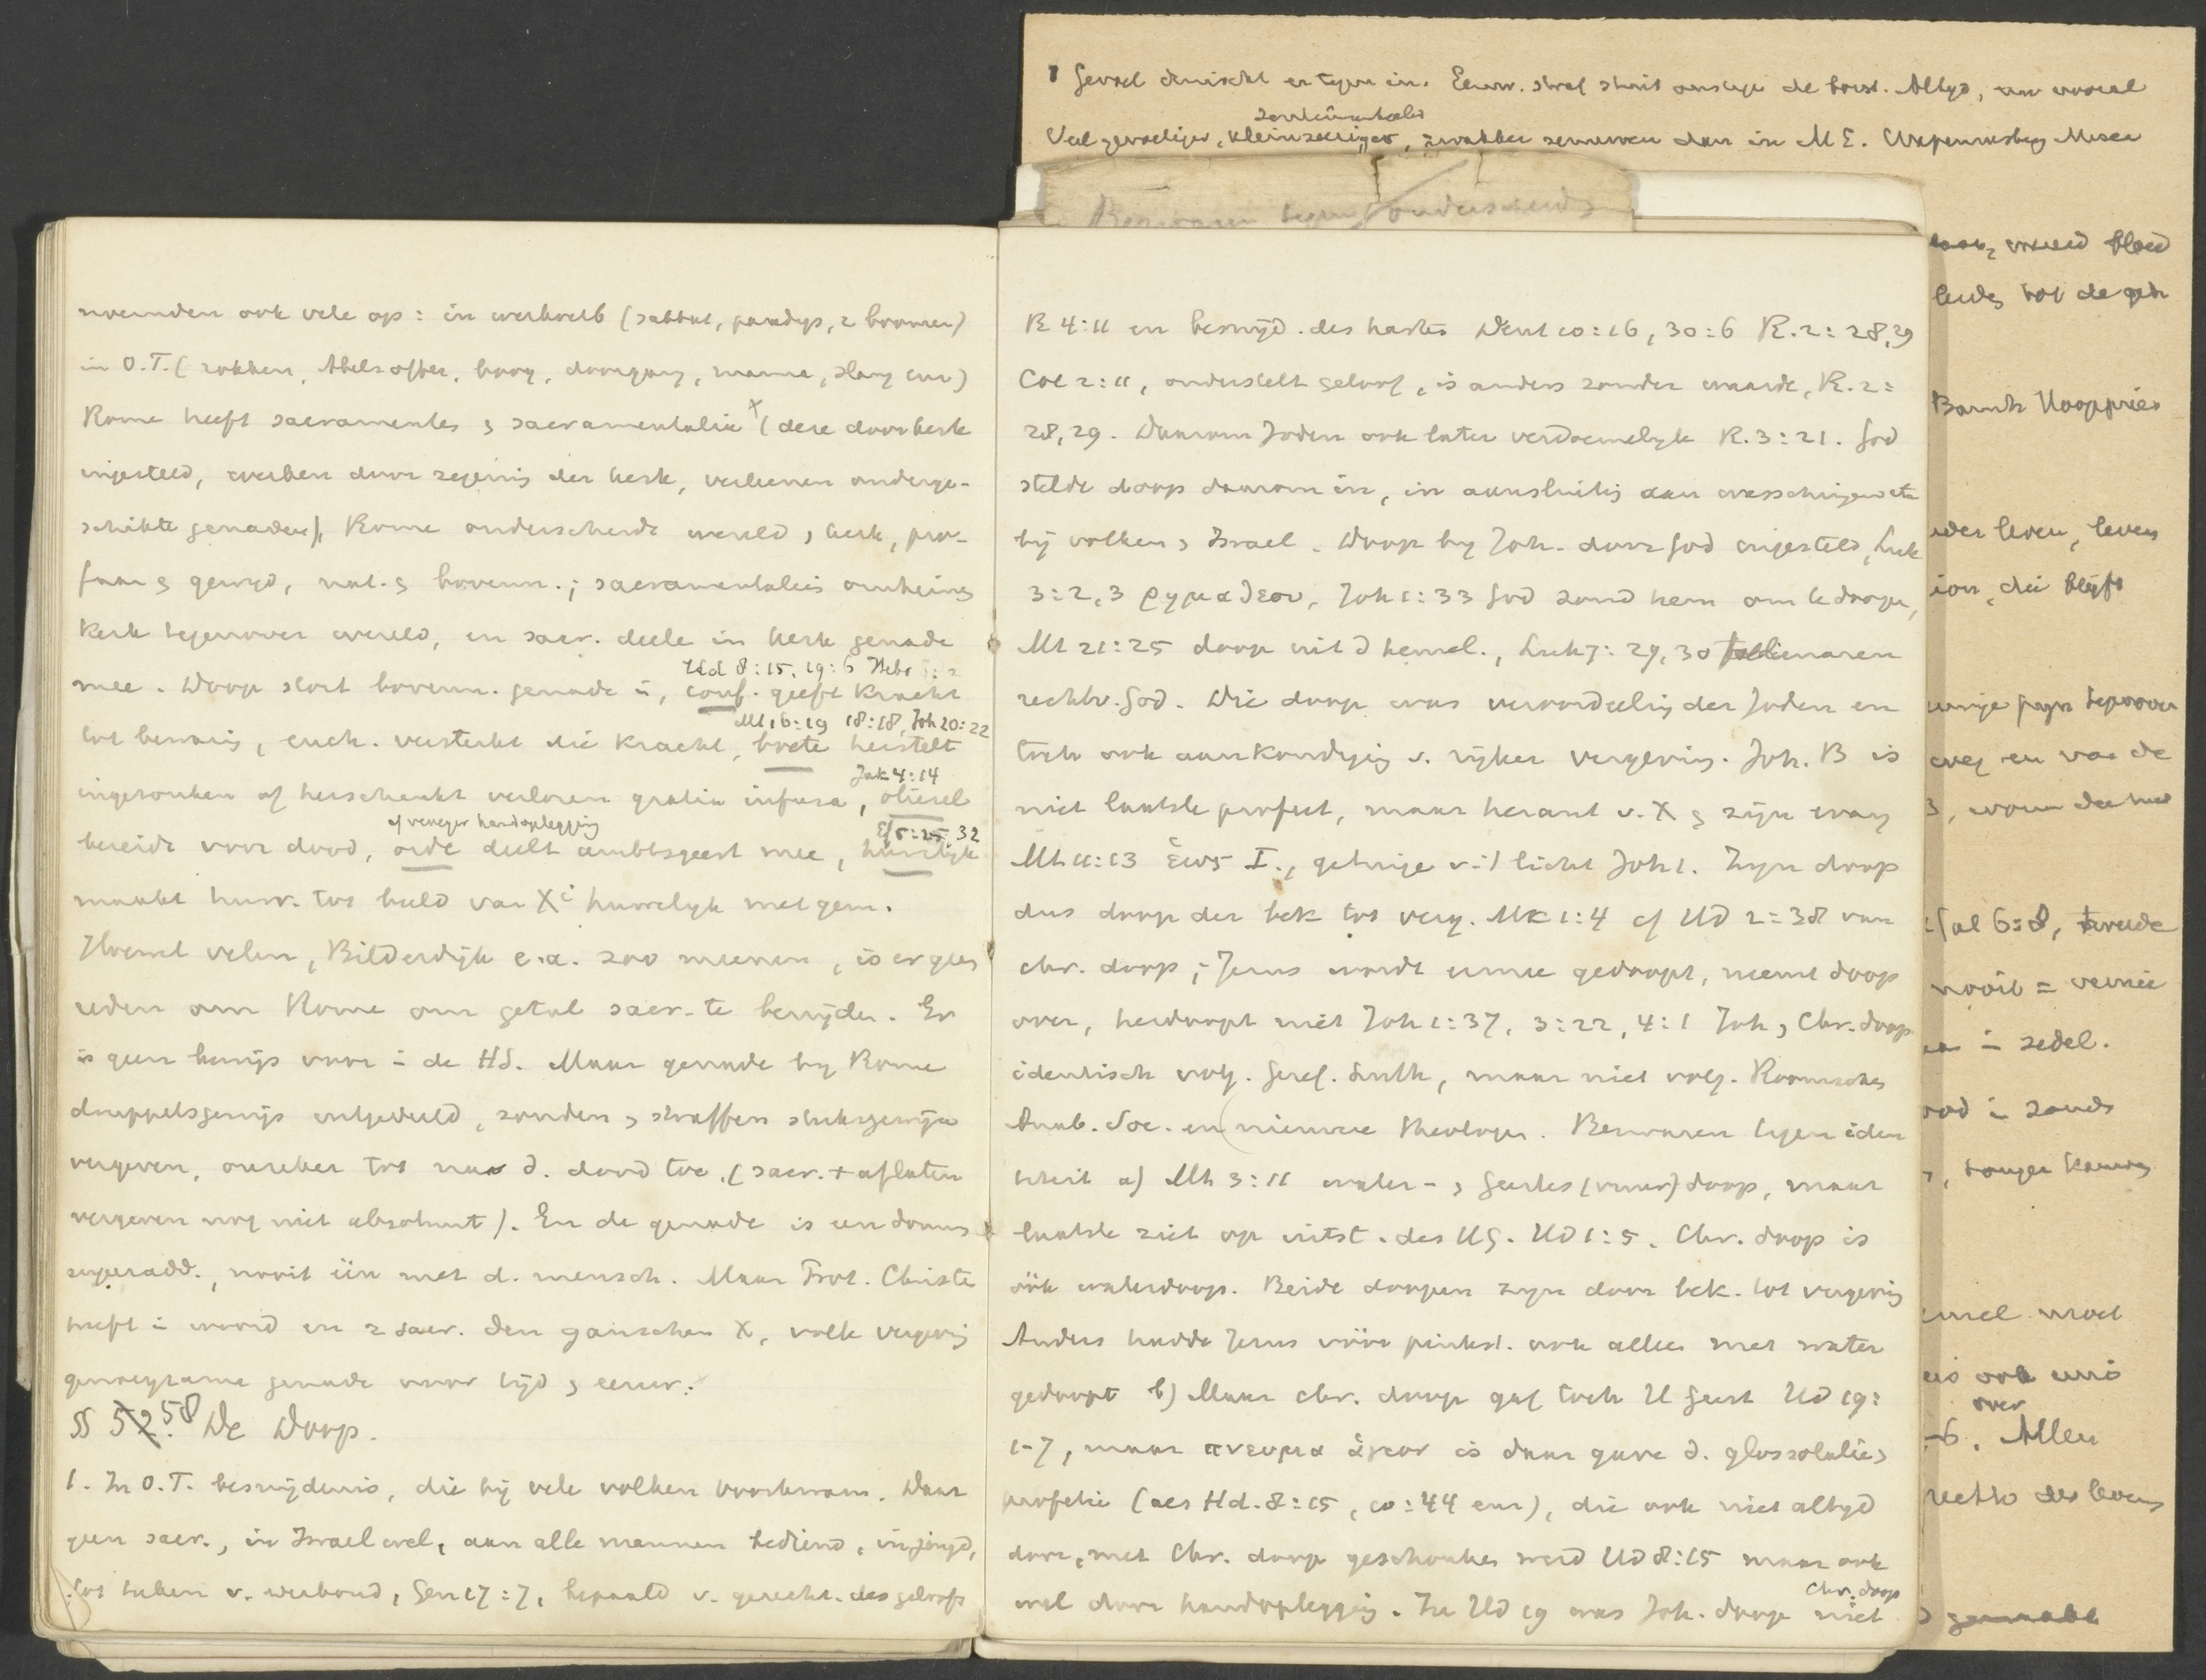 1 Gevoel druischt er tegen in. Eeuw. straf stuit onslage de borst. Altyd, en vooral
sentimenteeler
Veel gevoeliger, kleinzeeriger, zwakker zenuwen dan in M E.
Bezwaren tegen onderscheid
noemden ook vele op: in werkverb (sabbat, paradys, 2 boomen)
in O.T. (rokken, Abels offer, boog, doorgang, manna, slang enz)
Rome heeft sacramenten & sacramentalia + (deze door kerk
ingesteld, werken door zegening der kerk, verleenen onderge-
schikte genaden), Rome onderscheidt wereld & kerk, pro-
faan & gewyd, nat. & bovenn.; sacramentaliën omheinen
Kerk tegenover wereld, en sacr. deele in kerk genade
Hd 8:15, 19:6 Hebr 6:2
mee. Doop stort bovenn. genade in, conf. geeft kracht
Mt 16:19 18:18, Joh 20:22
tot bewaring, euch. versterkt die kracht, boete herstelt
Jak 4:14
ingezonken of herschenkt verloren gratia infusa, oliesel
of vroeger handoplegging Ef 5:25 32
bereidt voor dood, orde deelt ambtsgeest mee, huwelyk
maakt huw. tot beeld van Xi huwelyk met gem.
Hoewel velen, Bilderdijk e.a. zoo meenen, is er geen
reden om Rome om getal sacr. te benijden. Er
is geen bewijs voor in de HS. Maar genade by Rome
druppelsgewijs uitgedeeld, zonden & straffen stuksgewijze
vergeven, onzeker tot na d. dood toe. (sacr. + aflaten
vergeven nog niet absoluut). En de genade is een donum
superadd., nooit één met d. mensch. Maar Prot. Christen
heeft in woord en 2 sacr. den ganschen X, volle vergeving
genoegzame genade voor tyd & eeuw.
§§ 52. 58 De Doop.
1. In O.T. besnijdenis, die bij vele volken voorkwam. Daar
geen sacr., in Israel wel, aan alle mannen bediend, in jeugd,
tot teken v. verbond, Gen 17:7, bepaald v. gerecht. des geloofs
R 4:11 en besnyd. des harten Deut 10:16, 30:6 R. 2:28,29
Col 2:11, onderstelt geloof, is anders zonder waarde, R. 2:
28,29. Daarom Joden ook later verdoemelyk R. 3:21. God
stelde doop daarom in, in aansluiting aan wasschingen etc
bij volken & Israel. Doop by Joh. door God ingesteld, Luk
3:2,3 ρημα θεου, Joh 1:33 God zond hem om te doopen,
Mt 21:25 doop uit d hemel., Luk 7:29,30 tollenaren
rechtv. God. Die doop was veroordeeling der Joden en
toch ook aankondiging v. rijker vergeving. Joh. B is
niet laatste profeet, maar heraut v. X & zijn evang
Mt 11:13 ἕως I., getuige v. 't licht Joh 1. Zyn doop
dus doop der bek tot verg. Mk 1:4 cf HD 2:38 van
chr. doop; Jezus wordt ermee gedoopt, neemt doop
over, herdoopt niet Joh 1:37, 3:22, 4:1 Joh & Chr. doop
identisch volg. Geref. Luth, maar niet volg. Roomschen
Anab. Soc. en nieuwere theologen. Bezwaren tegen iden
titeit a) Mt 3:11 water- & Geestes (vuur) doop, maar
laatste ziet op uitst. des HG. HD 1:5. Chr. doop is
óók waterdoop. Beide doopen zyn door bek. tot vergeving
Anders hadde Jezus vóór pinkst. ook alleen met water
gedoopt b) Maar chr. doop gaf toch H Geest HD 19:
1-7, maar πνευμα ἁγιον is daar gave d. glossolalie &
profetie (als Hd. 8:15, 10:44 enz), die ook niet altyd
door, met Chr. doop geschonken werd HD 8:15 maar ook
Chr. doop
wel door handoplegging. In HD 19 was Joh. doop niet
vreed bloed
leidg tot de
leven, leven
ion, die blyft
weg en van de
Gal 6:8, tweede
nooit =
in zedel.
in
moet
ook
over
-6. Allen
des levens